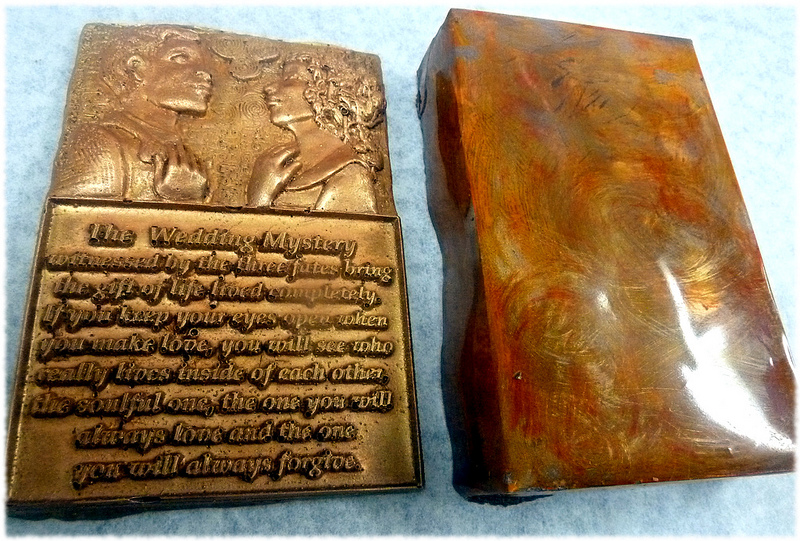 The Wedding Mystery
witnessed by the three fates bring
the gift of life lived completely.
If you keep your eyes open when
you make love, you will see who
really lives inside of each other,
the soulful one, the one you will
always love and the one
you will always forgive.